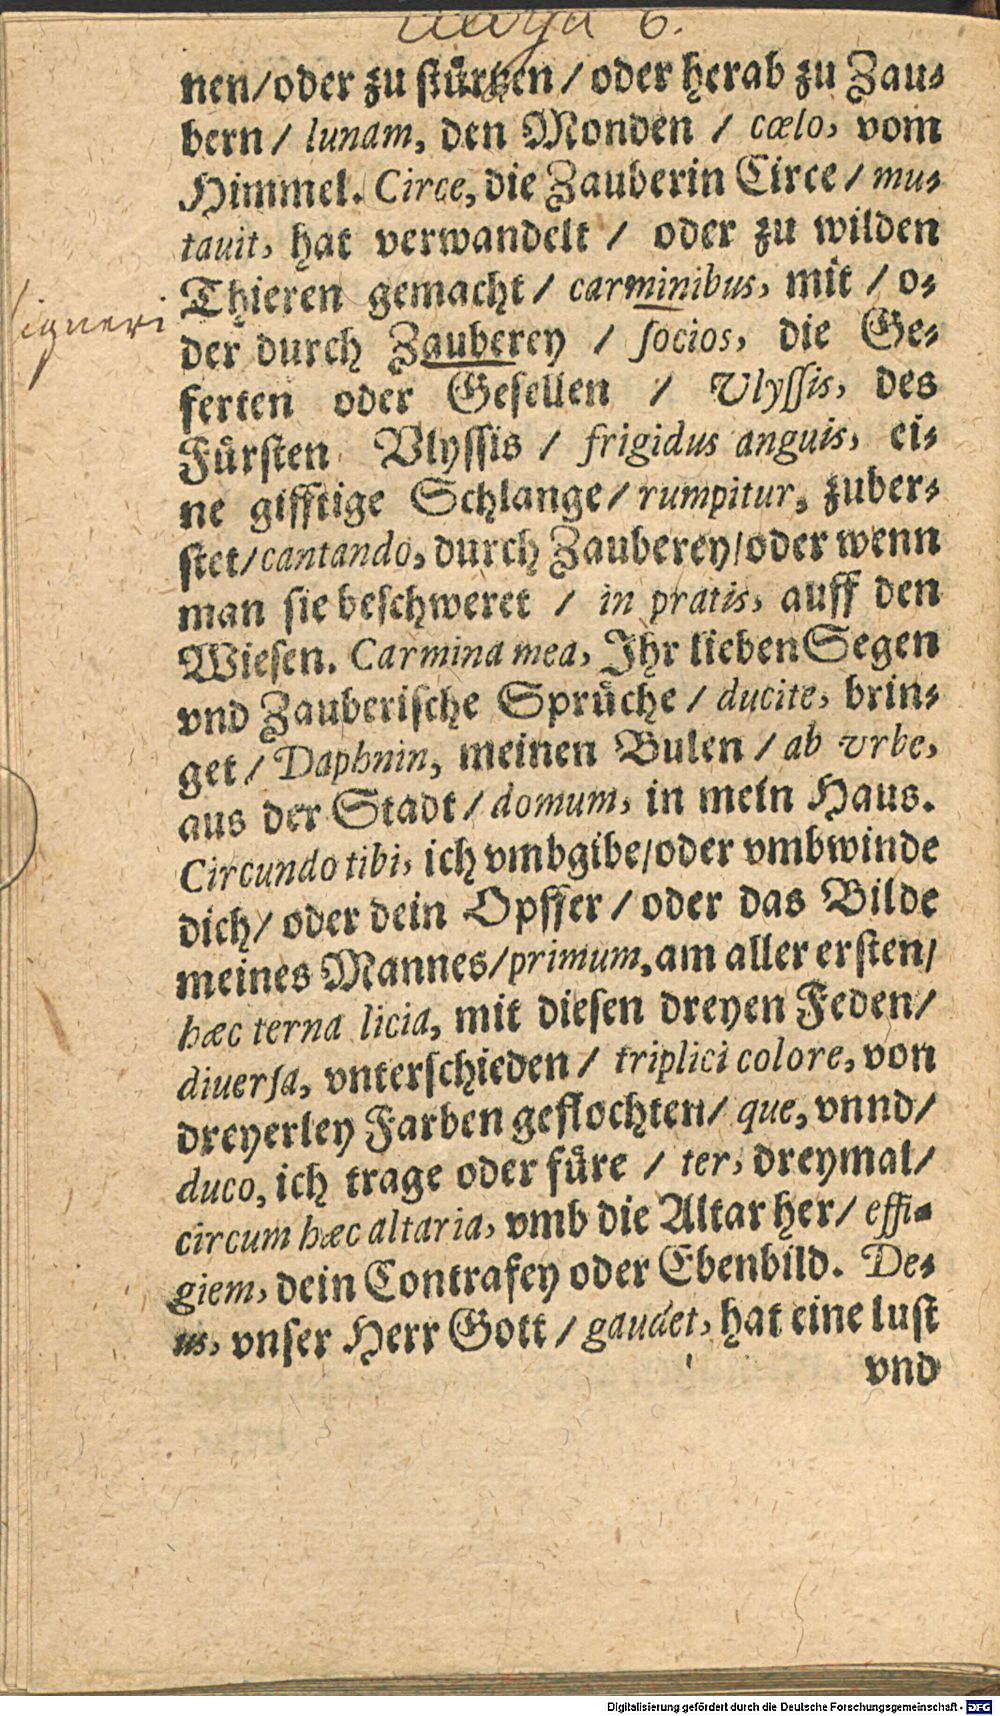 6.
nen/oder zu stürtzen / oder herab zu Zau⸗
bern / lunam, den Monden / cælo, vom
Himmel. Circe, die Zauberin Circe / mu⸗
tauit, hat verwandelt / oder zu wilden
Thieren gemacht / carminibus, mit / o⸗
der durch Zauberey / ſocios, die Ge⸗
ferten oder Geſellen / Vlyſſis, des
Fürſten Vlyſſis / frigidus anguis, ei⸗
ne gifftige Schlange / rumpitur, zuber⸗
ſtet/cantando, durch Zauberey/oder wenn
man ſie beſchweret / in pratis, auff den
Wieſen. Carmina mea, Ihr lieben Segen
vnd Zauberiſche Sprüche / ducite, brin⸗
get / Daphnin, meinen Bulen / ab vrbe,
aus der Stadt / domum, in mein Haus.
Circundo tibi, ich vmbgibe/oder vmbwinde
dich/ oder dein Opffer / oder das Bilde
meines Mannes/primum, am aller erſten/
hæc terna licia, mit dieſen dreyen Feden/
diuerſa, vnterſchieden / triplici colore, von
dreyerley Farben geflochten/ que, vnnd/
duco, ich trage oder füre / ter, dreymal/
circum hæc altaria, vmb die Altar her/ effi⸗
giem, dein Contrafey oder Ebenbild. De⸗
us, vnſer Herr Gott / gaudet, hat eine luſt
vnd
Digitalisierung gefördert durch die Deutsche Forschungsgemeinschaft - DFG